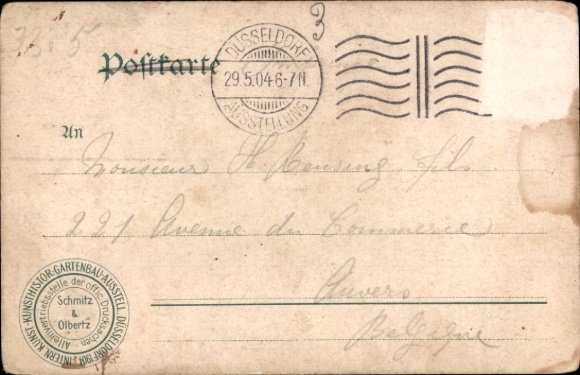 3
Postkarte
DÜSSELDORF
29.5.04 6-7N.
AUSSTELLUNG
An
Monsieur H. fils
221 Avenue du Commerce
Anvers
Belgique
INTERN. KUNST- KUNSTHISTOR. GARTENBAU-AUSSTELL. DÜSSELDORF 1904
Alleinvertriebsstelle der offic. Drucksachen
Schmitz
&
Olbertz